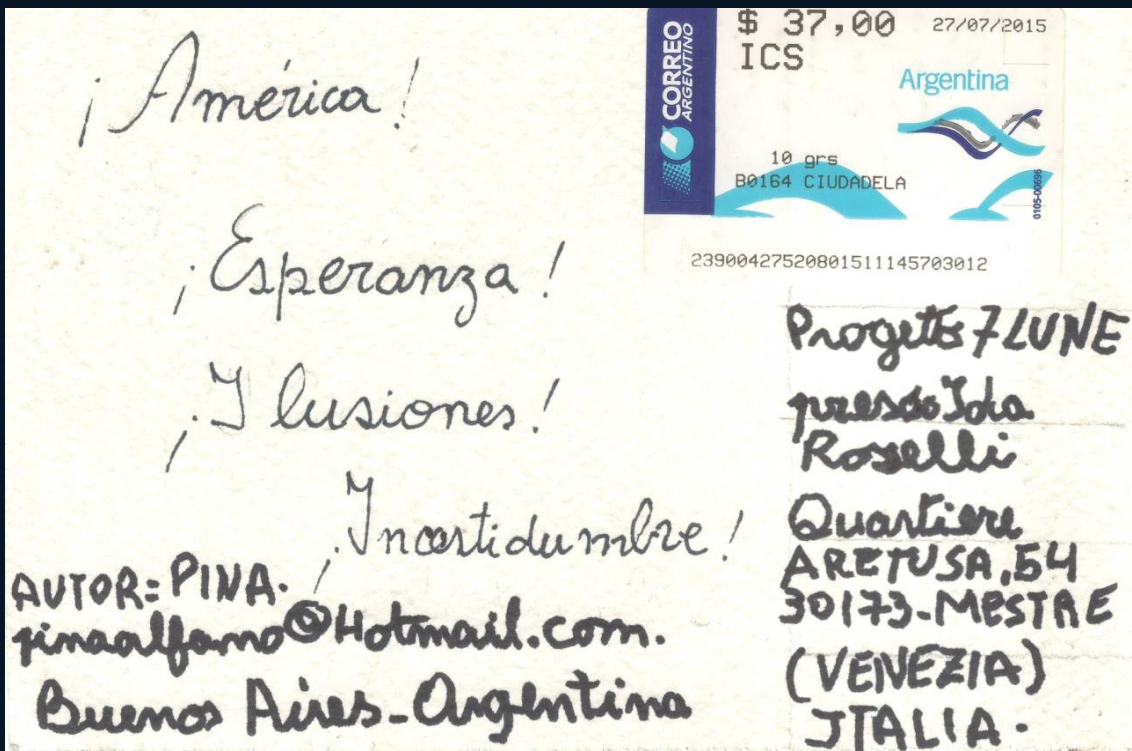 ¡América!
¡Esperanza!
¡Ilusiones!
¡Incertidumbre!
AUTOR=PINA.
pinaalfano@Hotmail.com.
Buenos Aires-Argentina
CORREO
ARGENTINO
$ 37,00
27/07/2015
ICS
Argentina
10 grs
B0164 CIUDADELA
0105-00696
23900427520801511145703012
Progetto 7 LUNE
presso Ida
Roselli
Quartiere
ARETUSA,54
30173-MESTRE
(VENEZIA)
ITALIA.